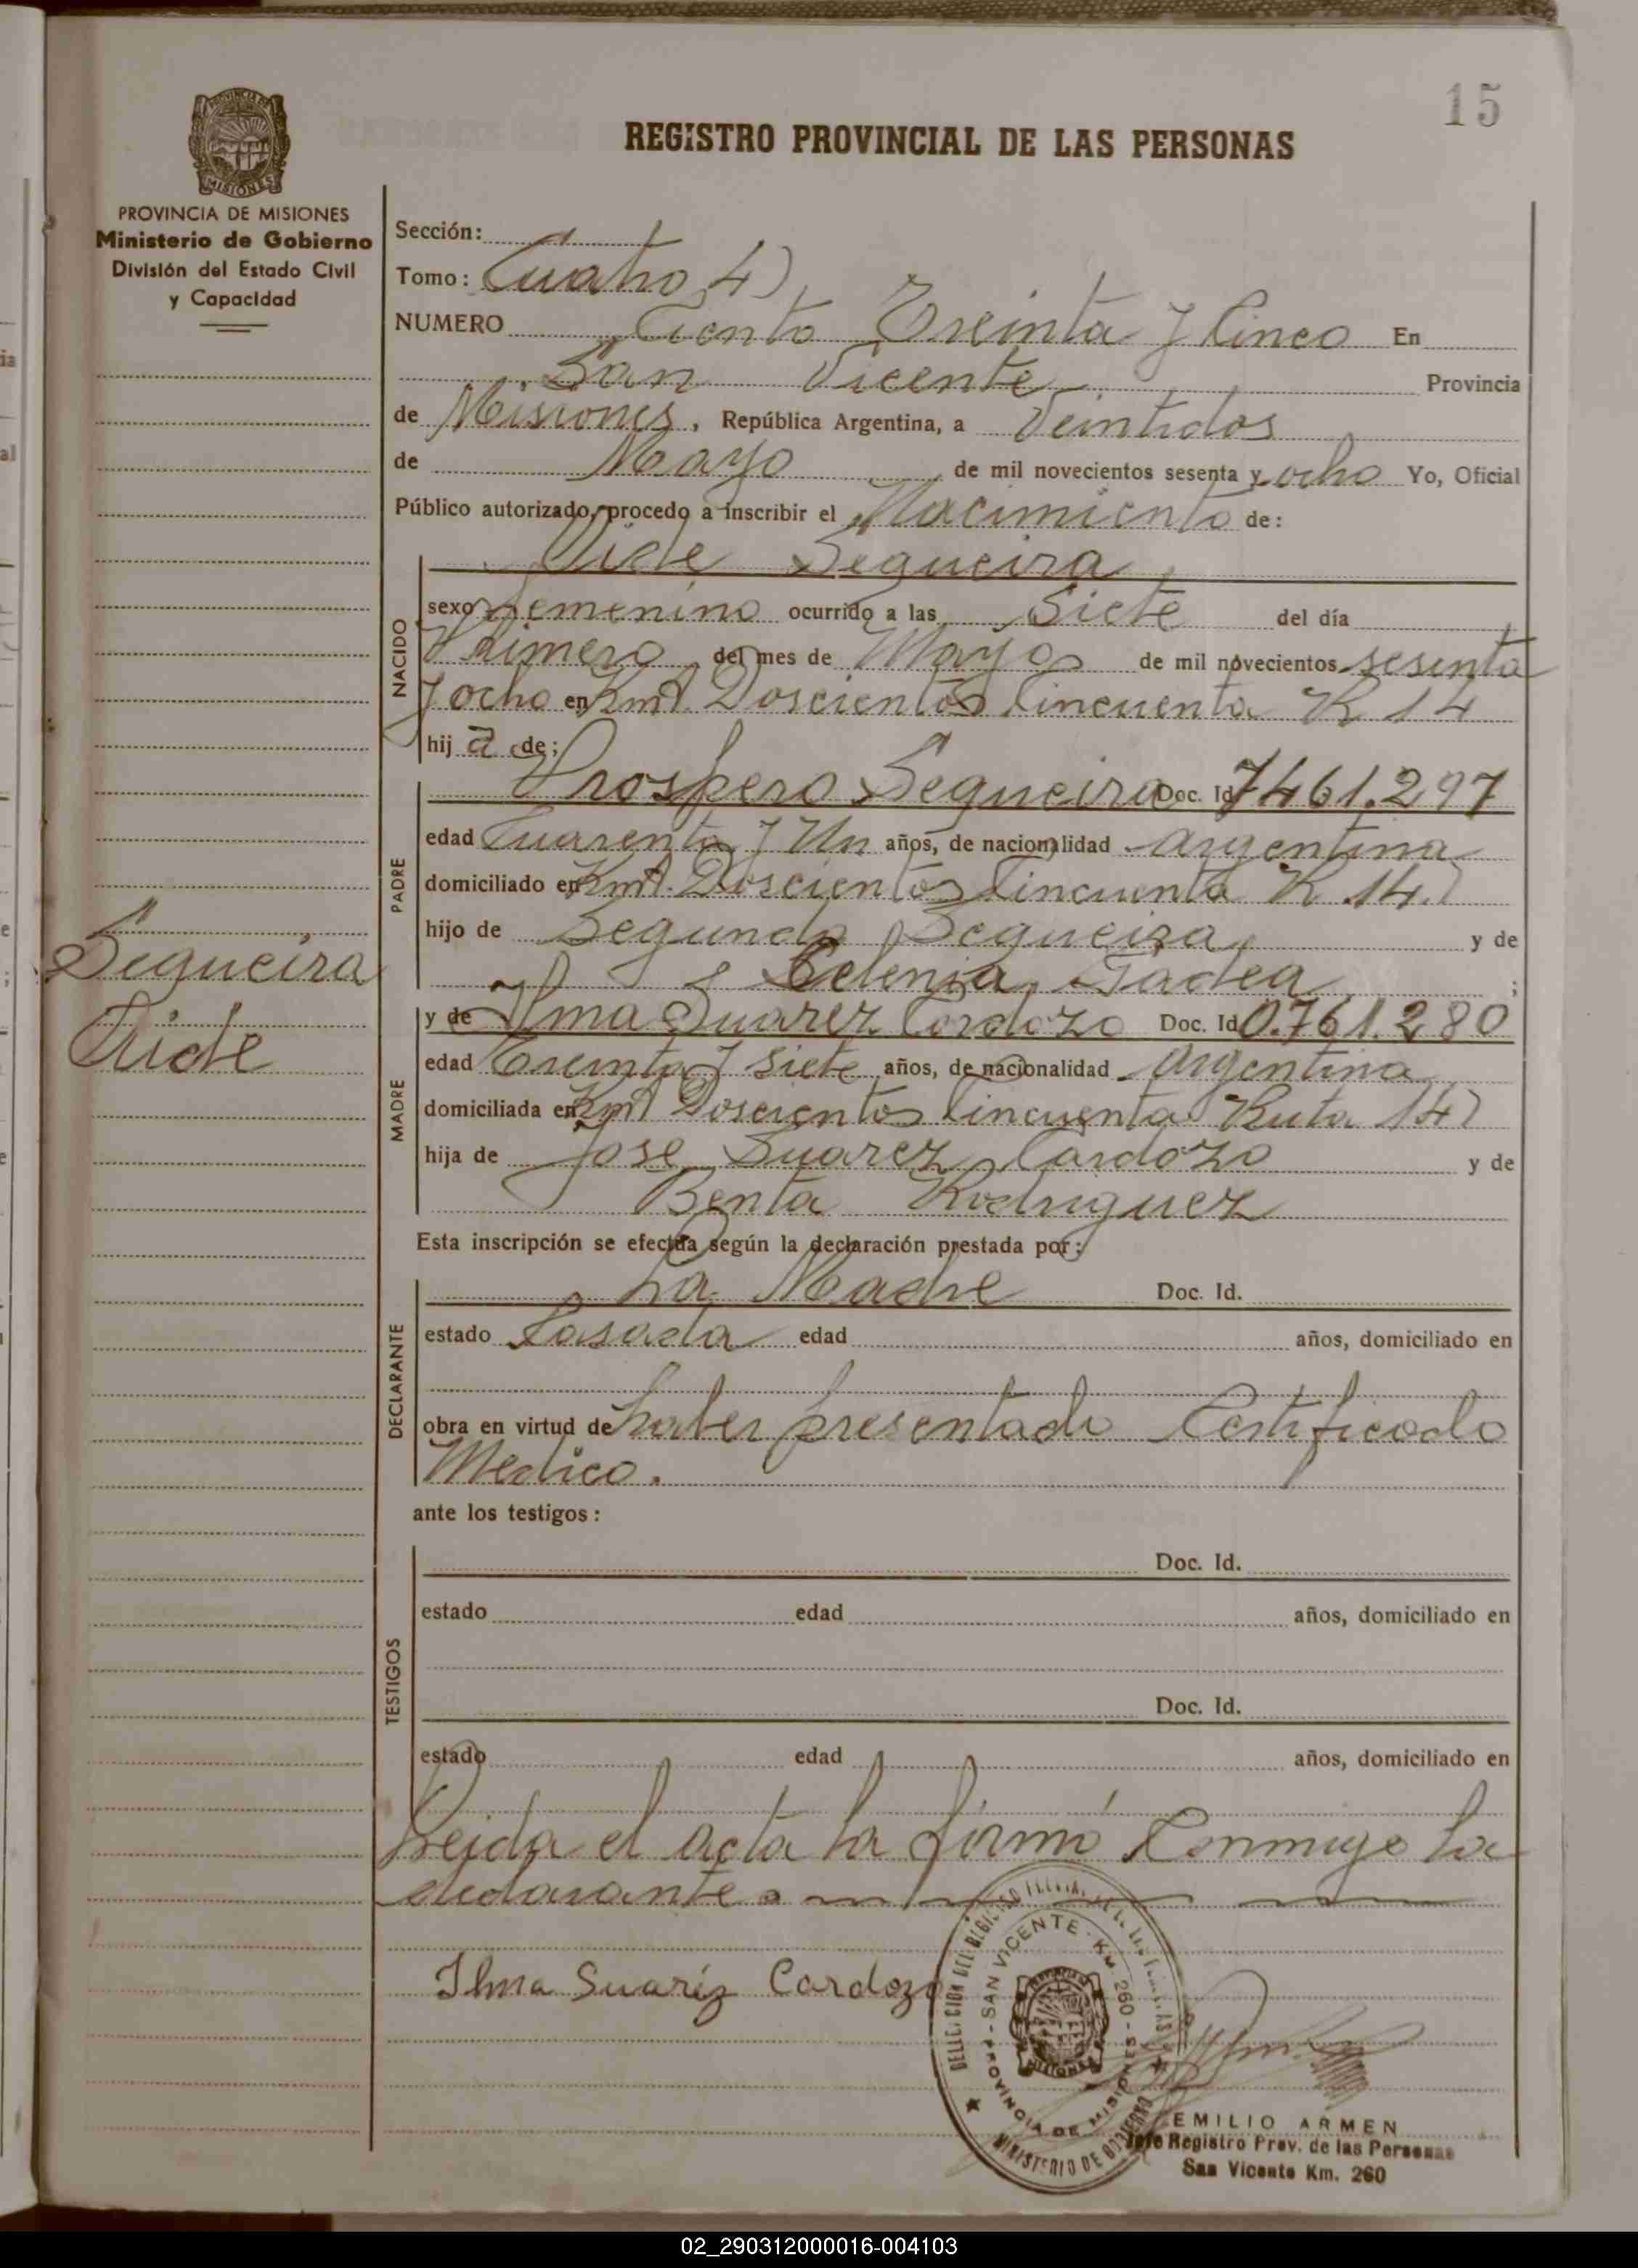 15
REGISTRO PROVINCIAL DE LAS PERSONAS
PROVINCIA DE MISIONES
Ministerio de Gobierno
División del Estado Civil
y Capacidad
Sección:
Tomo: Cuatro 4)
NUMERO Ciento Treinta y Cinco En
San Vicente Provincia
de Misiones, República Argentina, a Veintidos
de Mayo de mil novecientos sesenta y ocho Yo, Oficial
Público autorizado, procedo a inscribir el Nacimiento de:
Segueira
NACIDO
sexo Femenino ocurrido a las Siete del día
Primero del mes de Mayo de mil novecientos sesenta
y ocho en Kmt. Doscientos Cincuenta R 14
hija de:
PADRE
Prospero Segueira Doc. Id 7461.297
edad Cuarenta y Un años, de nacionalidad argentina
domiciliado en Kmt. Doscientos Cincuenta R 14
hijo de Segundo Segueira y de
Celenia Gadea ;
Segueira
MADRE
y de Ilma Suarez Cardozo Doc. Id 0.761.280
edad Treinta y siete años, de nacionalidad argentina
domiciliada en Kmt Doscientos Cincuenta Ruta 14
hija de Jose Suarez Cardozo y de
Benta Rodriguez
Esta inscripción se efectúa según la declaración prestada por:
DECLARANTE
La Madre Doc. Id.
estado Casada edad años, domiciliado en
obra en virtud de haber presentado Certificado
Medico.
ante los testigos:
TESTIGOS
Doc. Id.
estado edad años, domiciliado en
Doc. Id.
estado edad años, domiciliado en
Leida el acta la firmó Conmigo la
declarante.
Ilma Suaríz Cardozo
SAN VICENTE - KM. 260 - PROVINCIA DE MISIONES
MINISTERIO DE GOBIERNO
EMILIO ARMEN
Jefe Registro Prov. de las Personas
San Vicente Km. 260
02_290312000016-004103